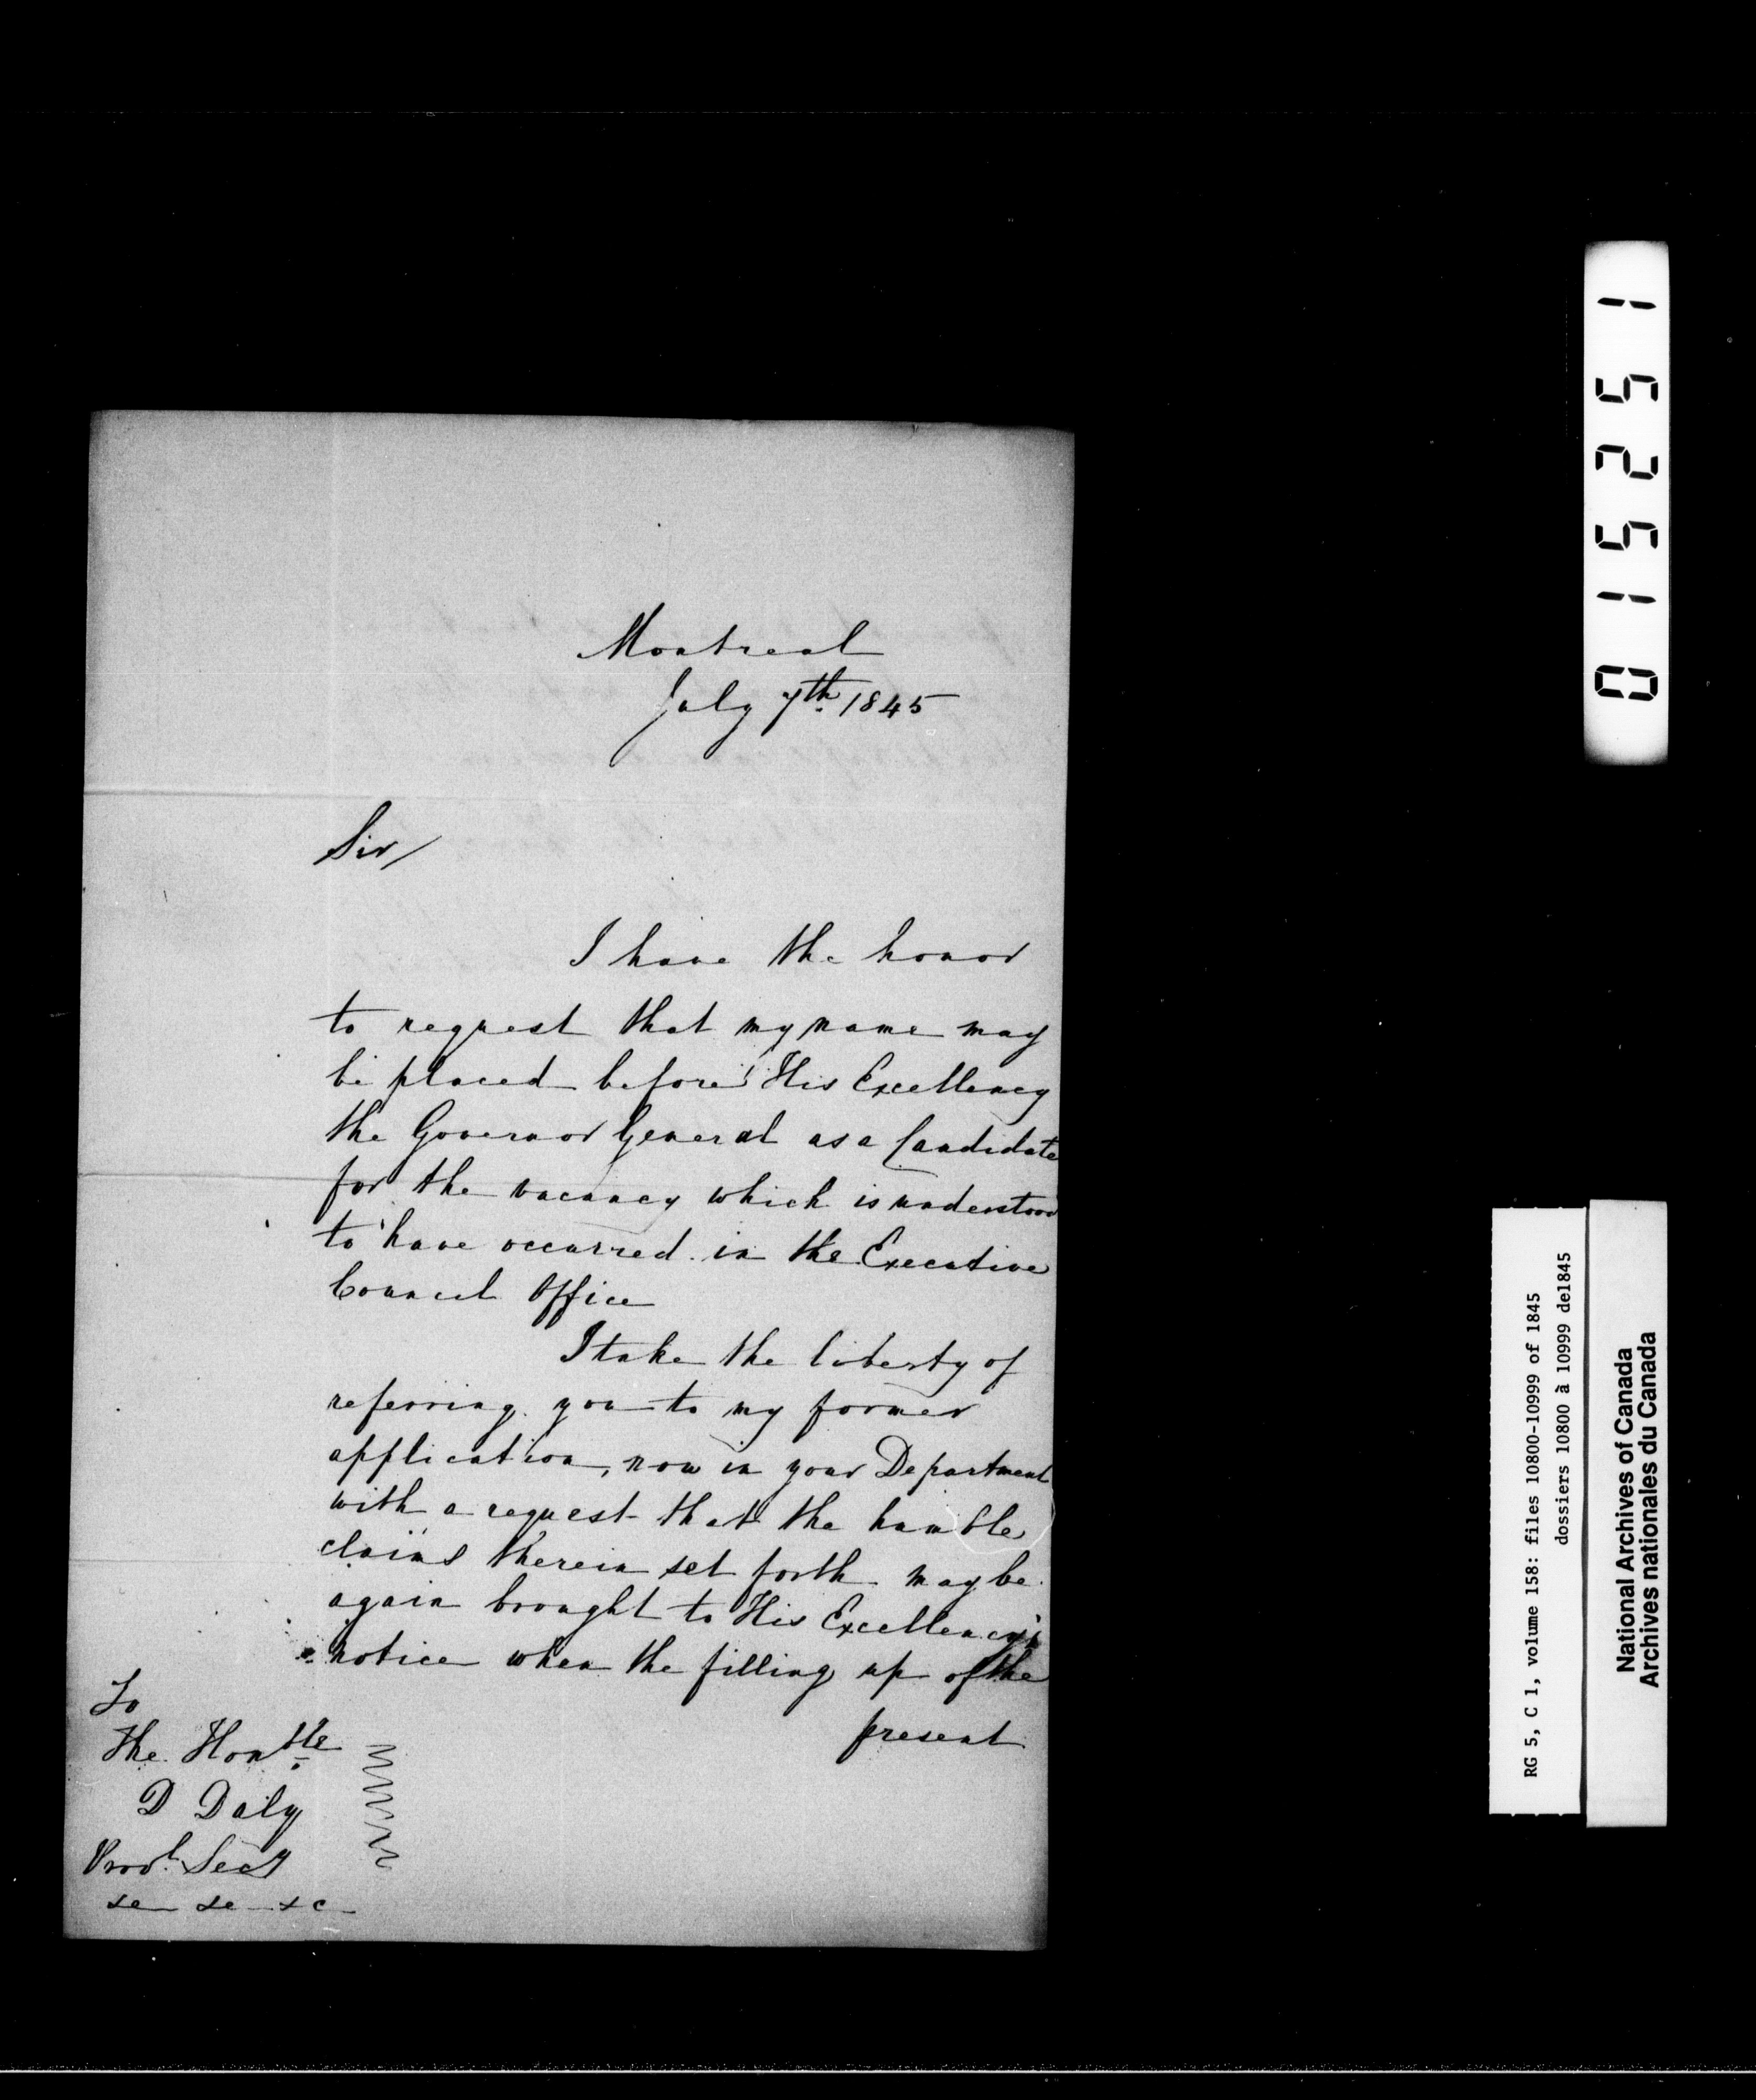 Montreal
July 7th. 1845
Sir/
I have the honor
to request that my name may
be placed before His Excellency
the Governor General as a Candidate
for the vacancy which is understood
to have occurred in the Executive
Council Office
I take the liberty of
referring you to my former
application, now in your Department
with a request that the humble
claims therein set forth may be
again brought to His Excellency's
notice when the filling up of the
present
To
The Honble
D Daly
Provl. Secy
&c &c &c
015251
RG 5, C 1, volume 158: files 10800-10999 of 1845
dossiers 10800 à 10999 de1845
National Archives of Canada
Archives nationales du Canada